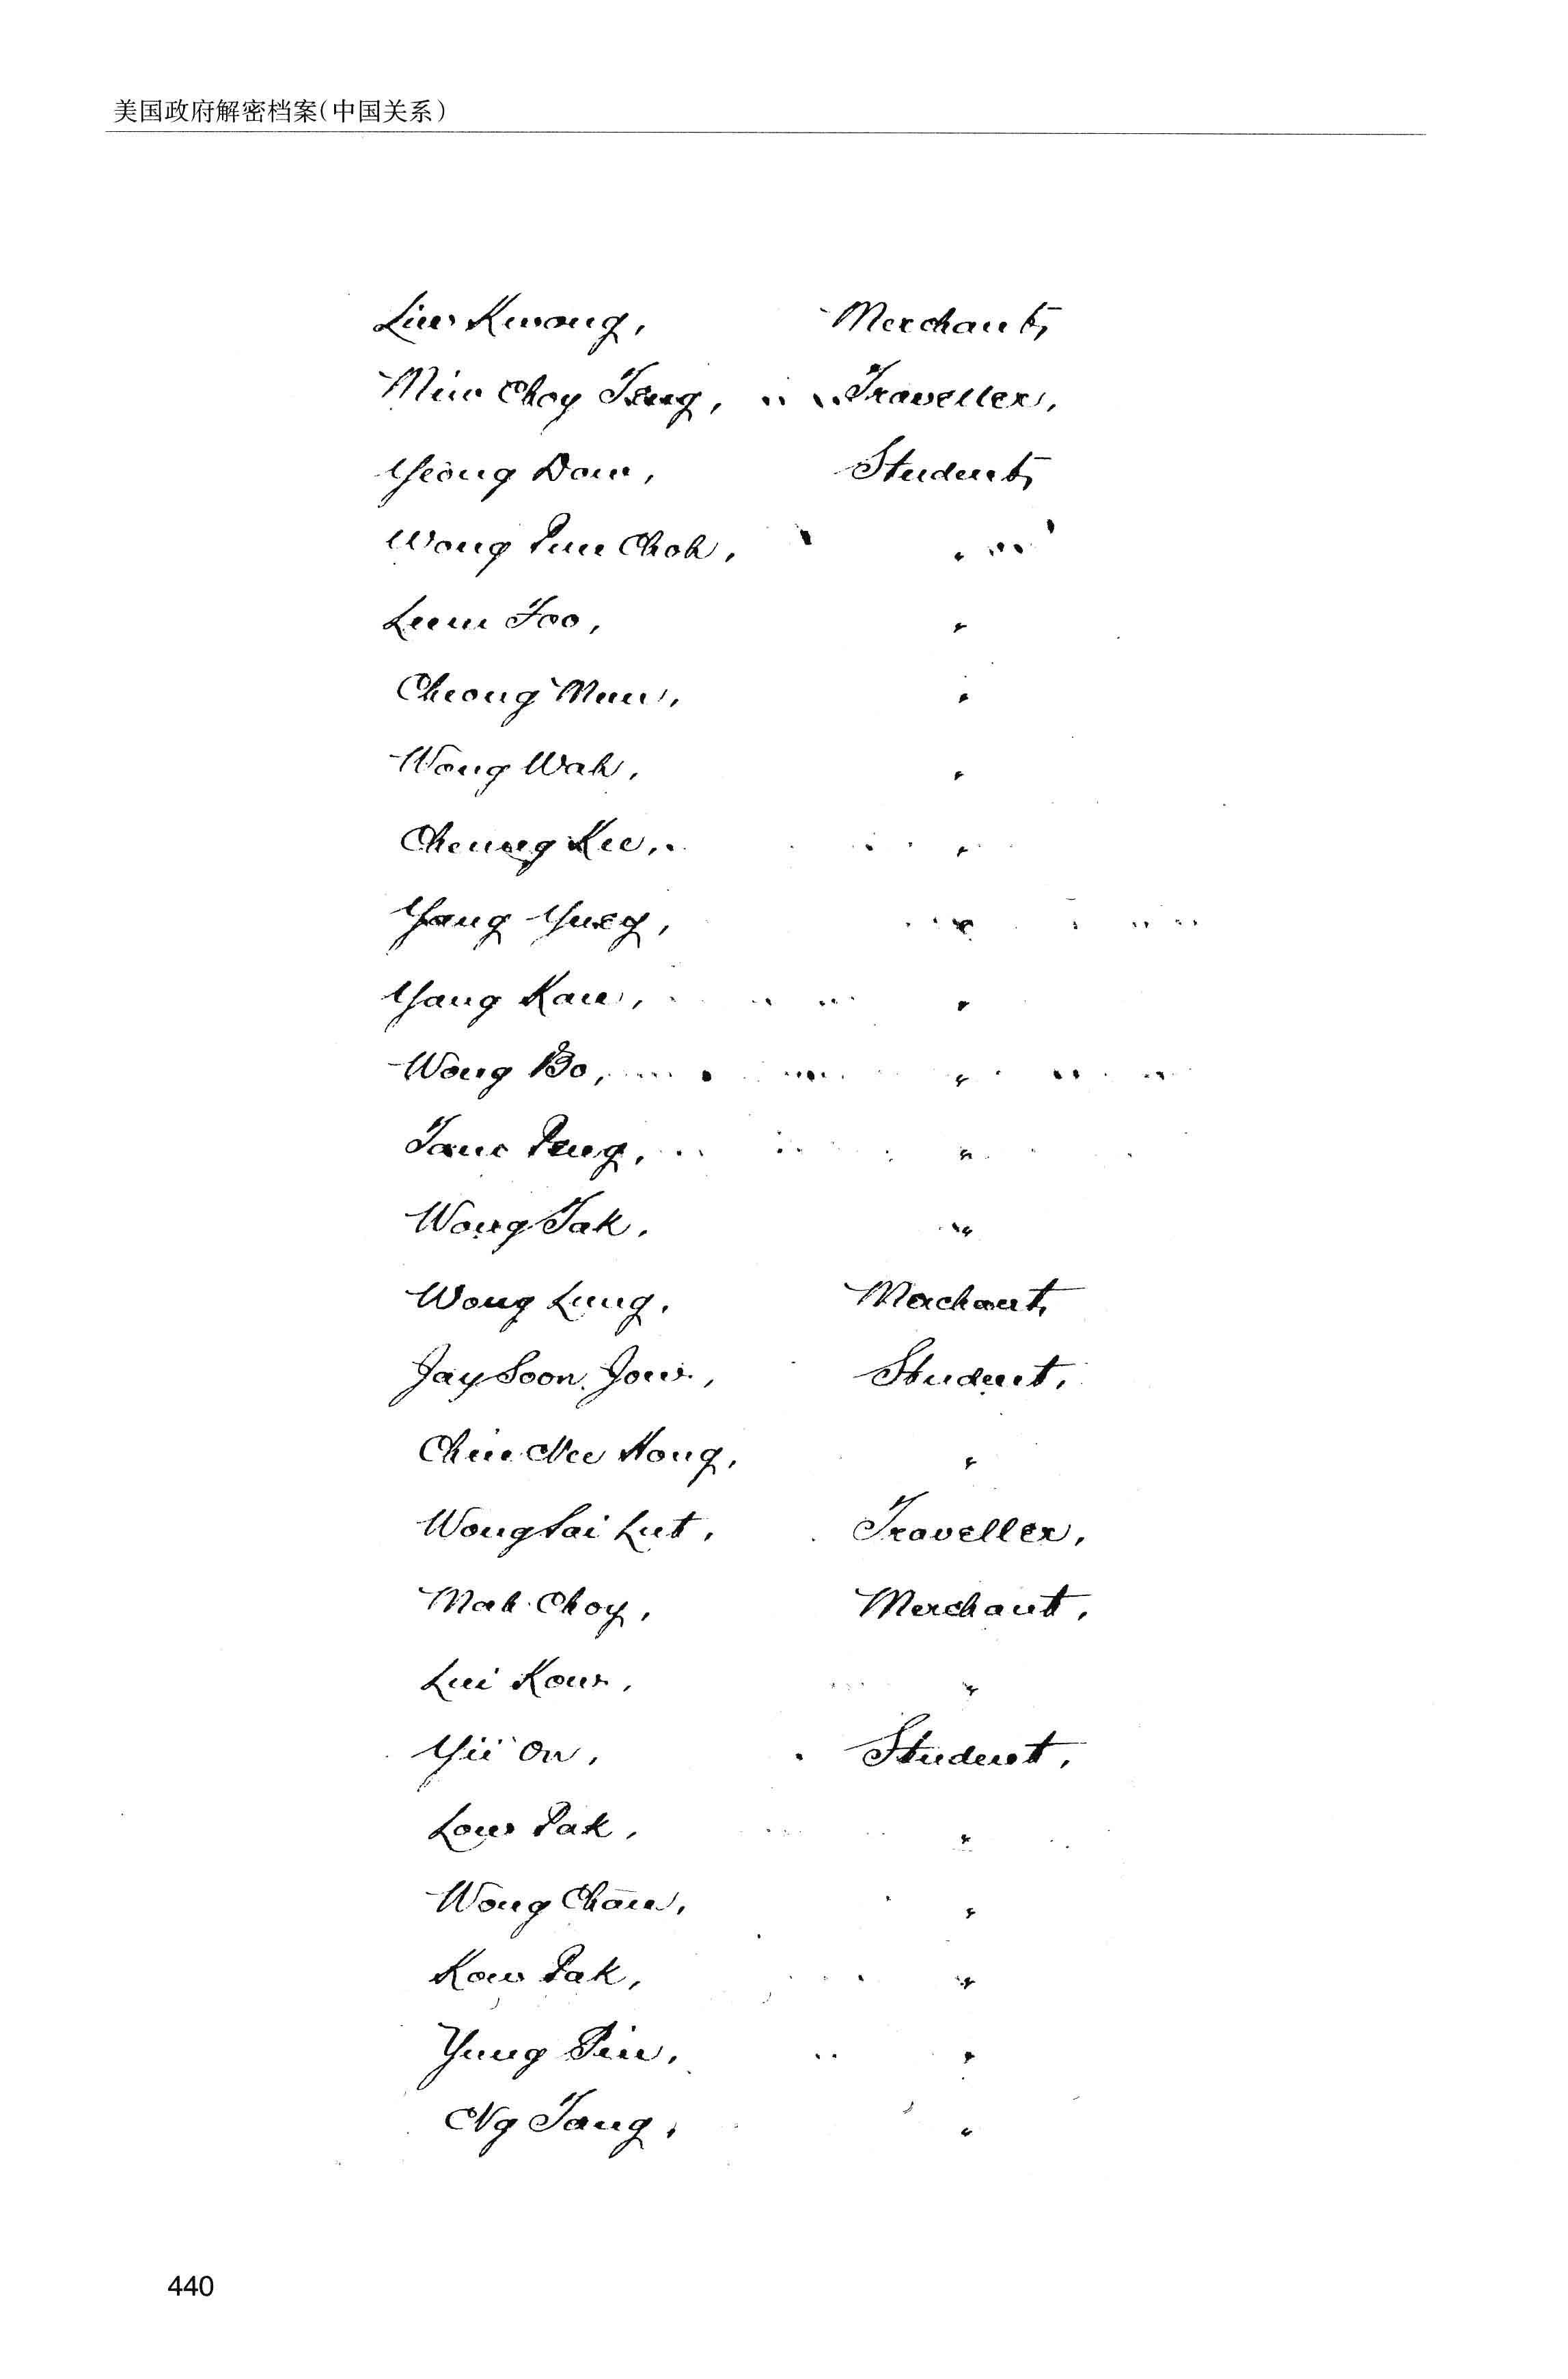 美国政府解密档案(中国关系)
Liu Kwong, Merchant,
Min Choy Tseng, Traveller,
Yeong Dow, Student,
Wong Pun Chok, "
Leem Foo, "
Cheong Mun, "
Wong Wah, "
Cheung Kee, "
Yang Yueg, "
Yang Kau, "
Wong Bo, "
Peng, "
Wong Tak, "
Wong Lung, Merchant,
Jay Soon Jow, Student,
Chin Nee Hong, "
Wong Sai Lut, Traveller,
Mah Choy, Merchant,
Lui Kow, "
Yii On, Student,
Low Pak, "
Wong Chan, "
Kow Pak, "
Yung Pin, "
Ng Tang, "
440